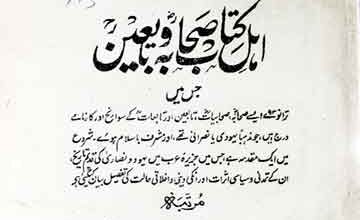 اہل کتاب صحابہؓ و تابعین
جس میں
ترانوے ۹۳ ایسے صحابہؓ، صحابیاتؓ، تابعین، اور تابعات کے سوانح اور کارنامے
درج ہیں، جو مذہباً یہودی یا نصرانی تھے، اور مشرف باسلام ہوئے۔ شروع
میں ایک مقدمہ ہے جس میں جزیرۂ عرب میں یہود و نصاریٰ کی قدیم تاریخ،
ان کے تمدنی و سیاسی اثرات، اور انکی دینی و اخلاقی حالت کی تفصیل بیان کی گئی ہے
مرتبہ